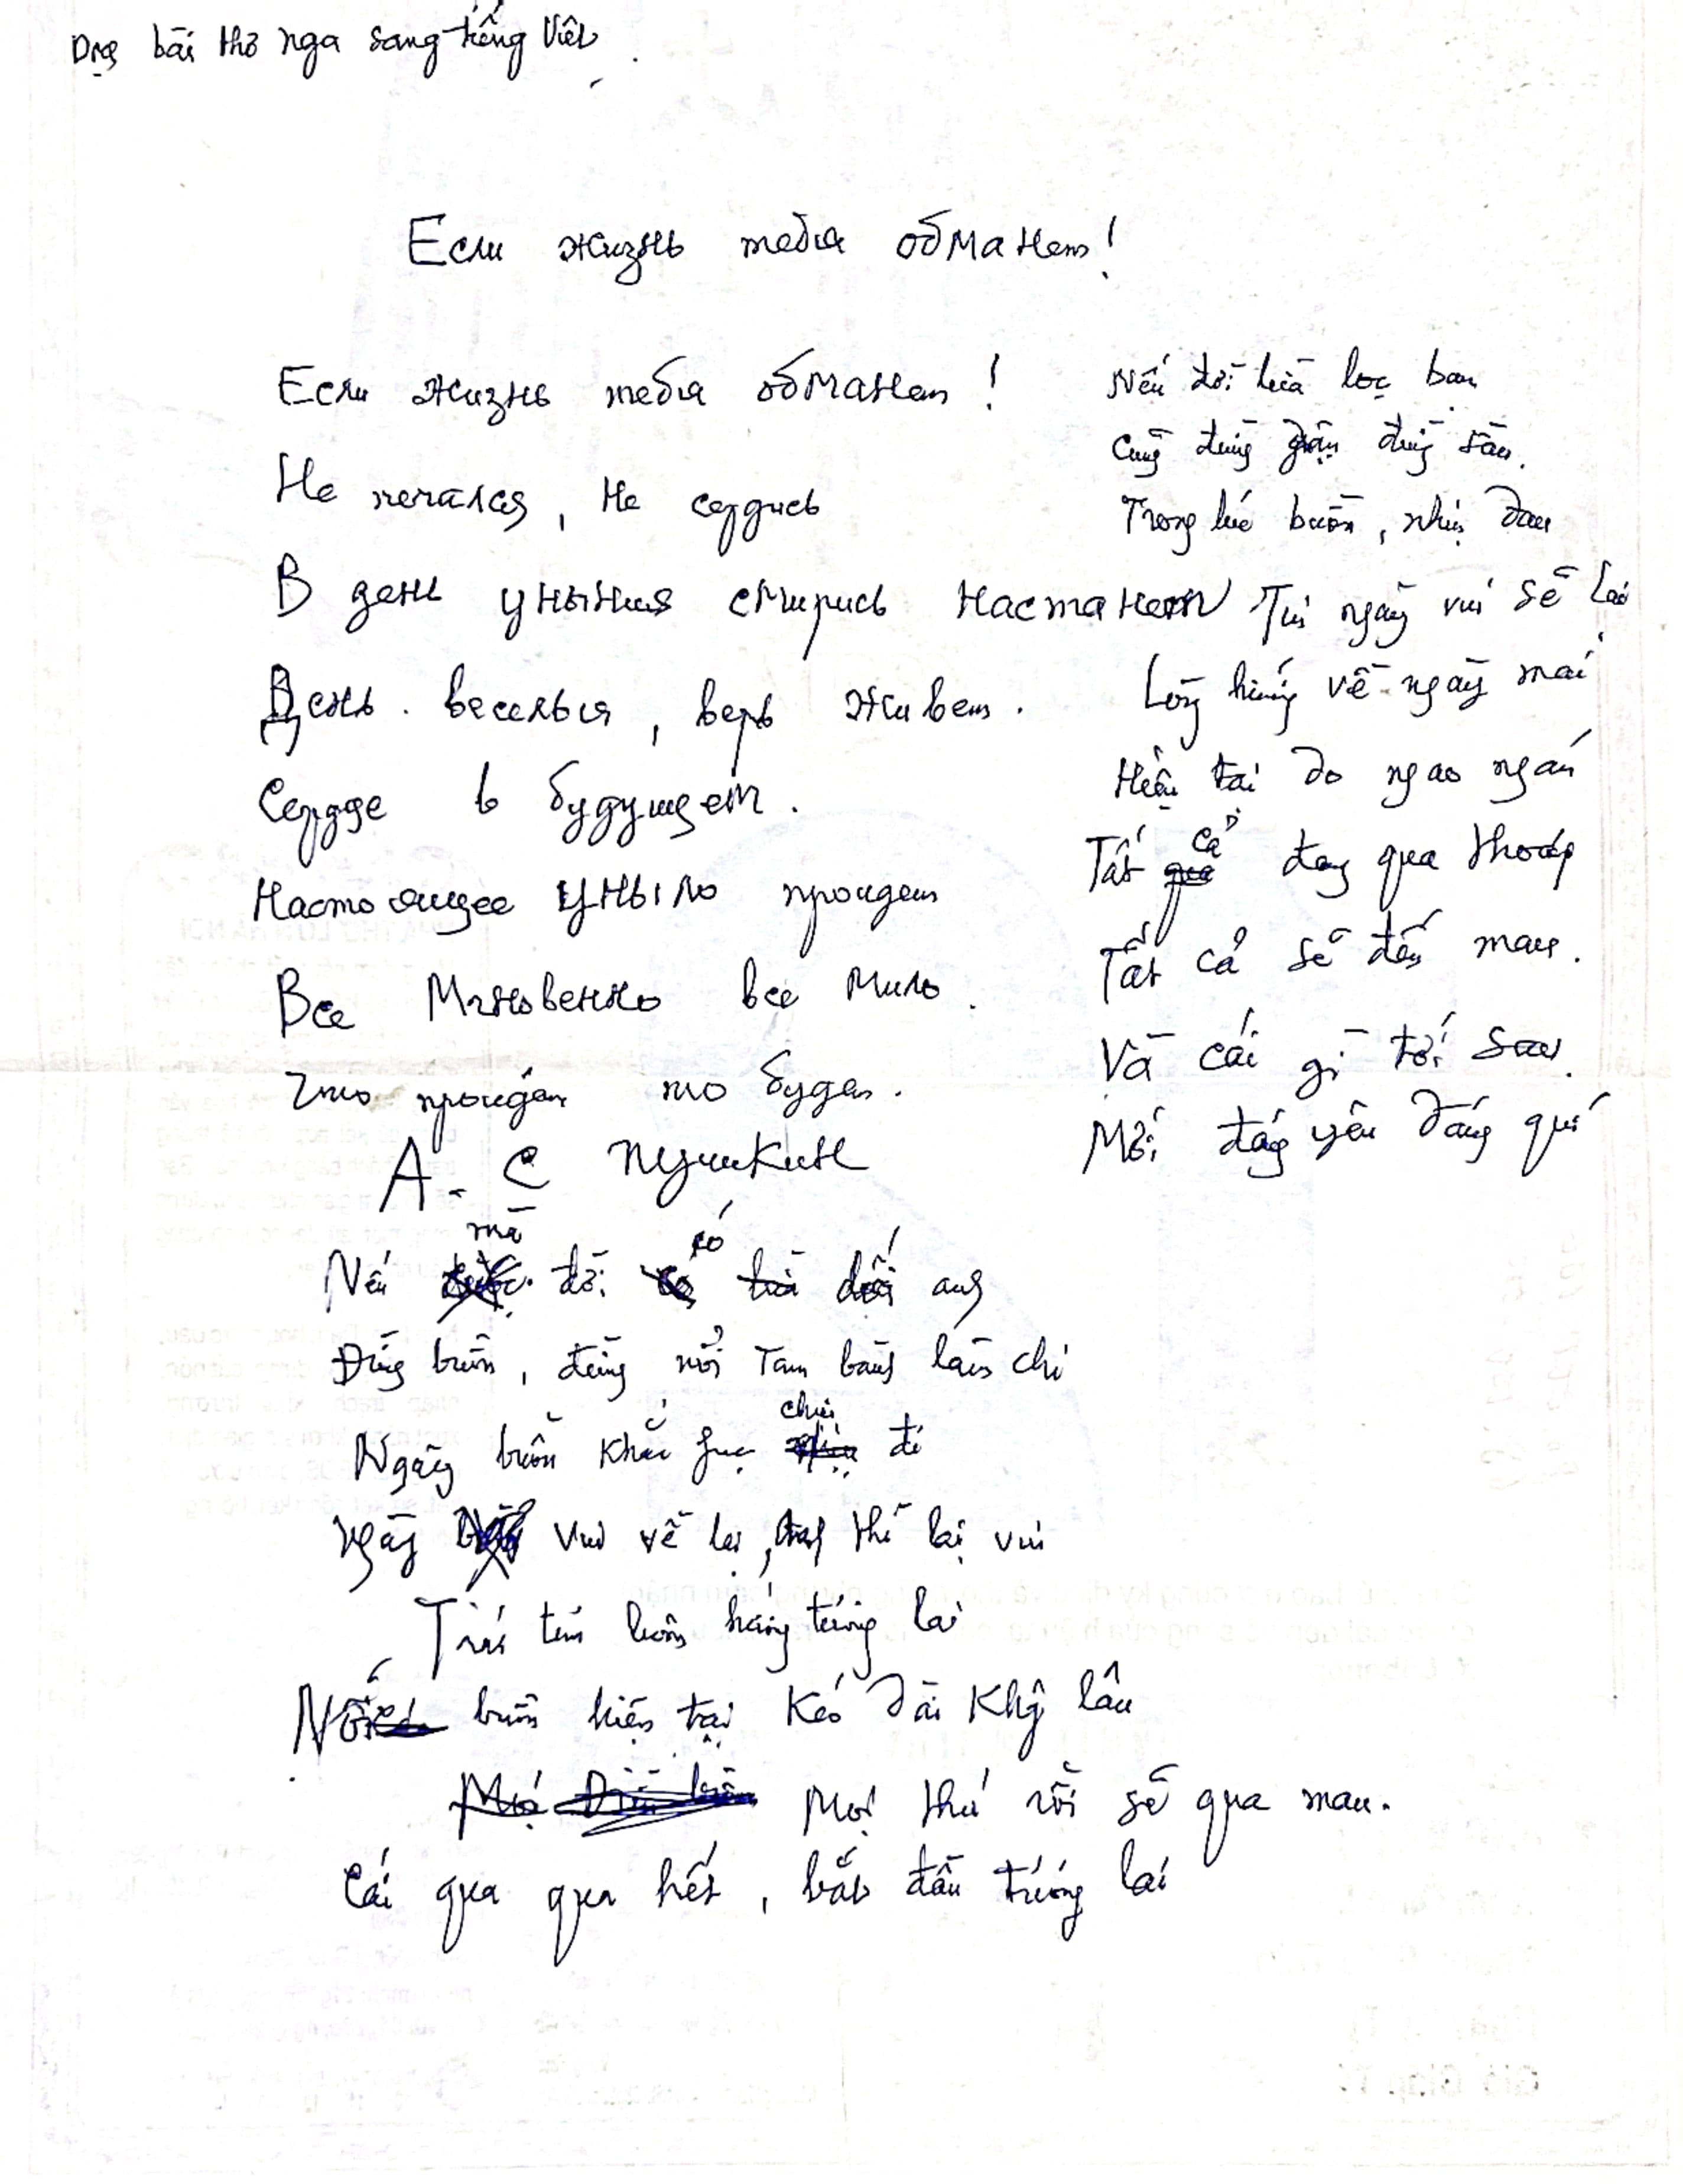 Dịch bài thơ nga sang tiếng Việt.
Если жизнь тебя обманет!
Если жизнь тебя обманет!
Не печалься, не сердись
В день уныния смирись настанет
День веселья, верь живет.
Сердце в будущем.
Настоящее уныло проидет
Все Мгновенно все мило.
Что проидет то будет.
А. С Пушкин
Nếu đời lừa lọc bạn
Cũng đừng giận đừng sầu.
Trong lúc buồn, nhịn đau
Thì ngày vui sẽ lại
Lòng hướng về ngày mai
Hiện tại do ngao ngán
Tất cả đang qua thoáng
Tất cả sẽ đến mau.
Và cái gì tới sau.
Mới đáng yêu đáng quí
Nếu mà đời có dối anh
Đừng buồn, đừng nổi Tam bành làm chi
Ngày buồn Khắc fục chịu đi
Ngày vui về lại, thì lại vui
Trái tim luôn hướng tương lai
Nỗi buồn hiện tại Kéo dài Không lâu
Mọi thứ rồi sẽ qua mau.
Cái qua qua hết, bắt đầu tương lai